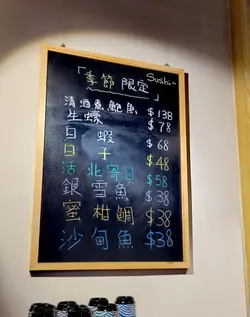 「季節 限定」 Sushi~
清酒煮鮑魚 $138
生蠔 $78
日 蝦 $68
日 子 $48
活 北寄貝 $58
銀 雪魚 $38
蜜 柑鯛 $38
沙甸魚 $38